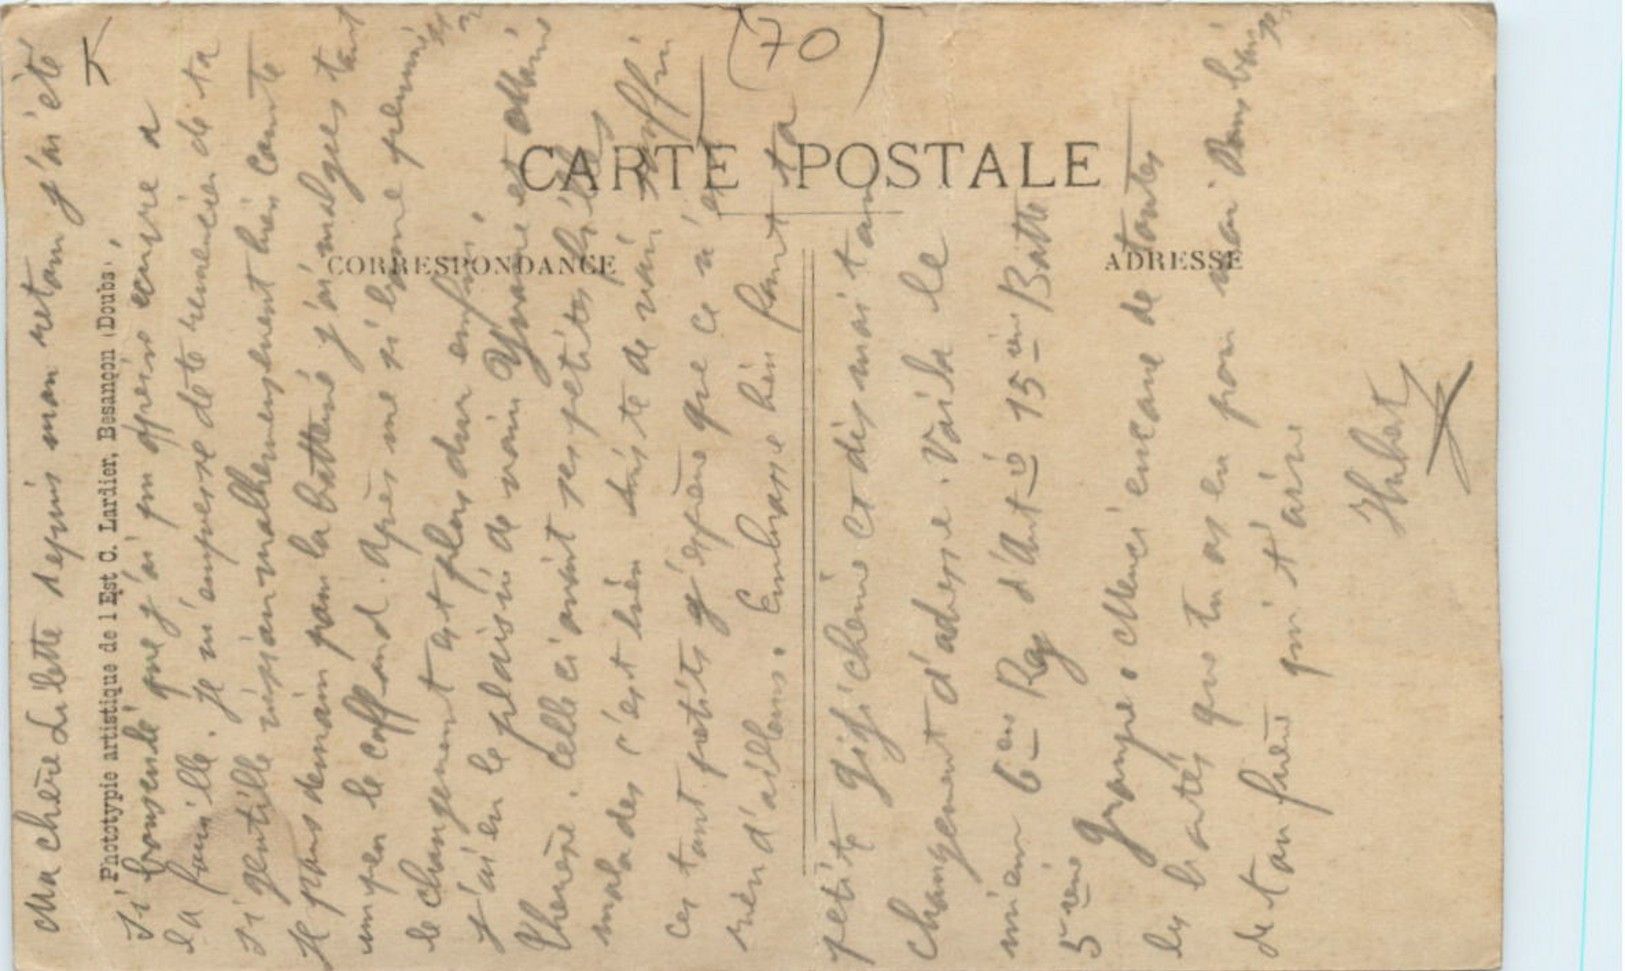 (70)
CARTE POSTALE
CORRESPONDANCE
ADRESSE
Phototypie artistique de l Est C. Lardier, Besançon (Doubs)
Ma chère Lilette depuis mon retour j'ai été
si bousculé que j'ai pu à peine écrire a
la famille. Je m'empresse de te remercier de ta
si gentille mission malheureusement bien courte
Je pars demain pour la batterie j'ai malgré tout
un peu le caffard. après une si bonne
le changement est plus dur enfin
j'ai eu le plaisir de voir Yvonne et
Therèse. Celle ci avait ses petits
malades c'est bien triste de voir souffrir
ces tout petits j'espère que ce n'est
rien d'ailleurs. Embrasse bien fort ta
petite Gigi chérie et dis moi ton
changement d'adresse. Voila le
mien 6em Reg d'Artie 15em Batte
5eme Groupe. Merci encore de toutes
les bontés que tu as eu pour moi
de ton frère qui t'aime
Hubert